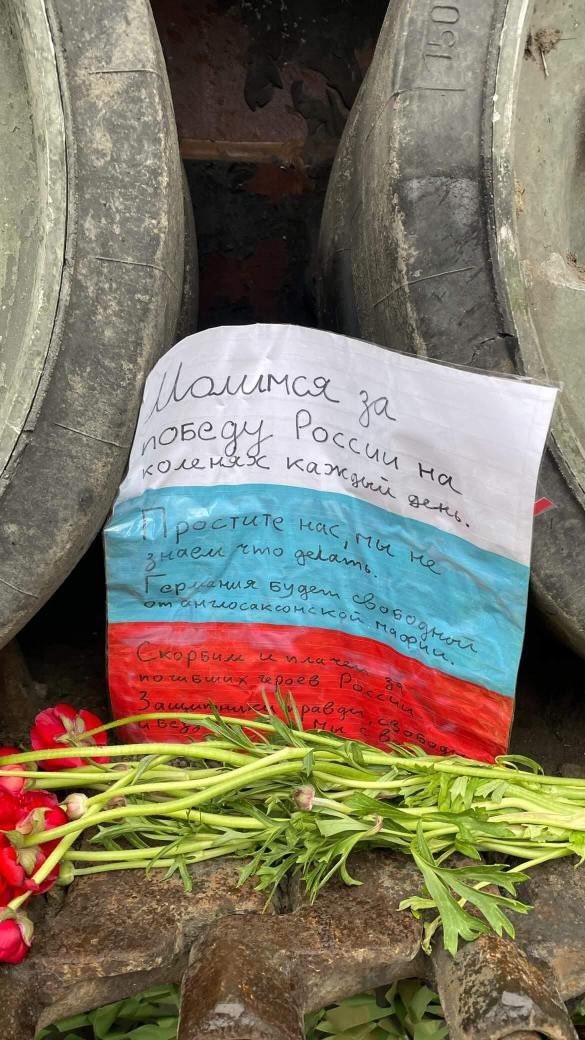 150
Молимся за
победу России на
коленях каждый день.
Простите нас, мы не
знаем что делать.
Германия будет свободной
от англосаксонской мафии.
Скорбим и плачем за
погибших героев России
Защитники правды, свободы
и без Мы с в